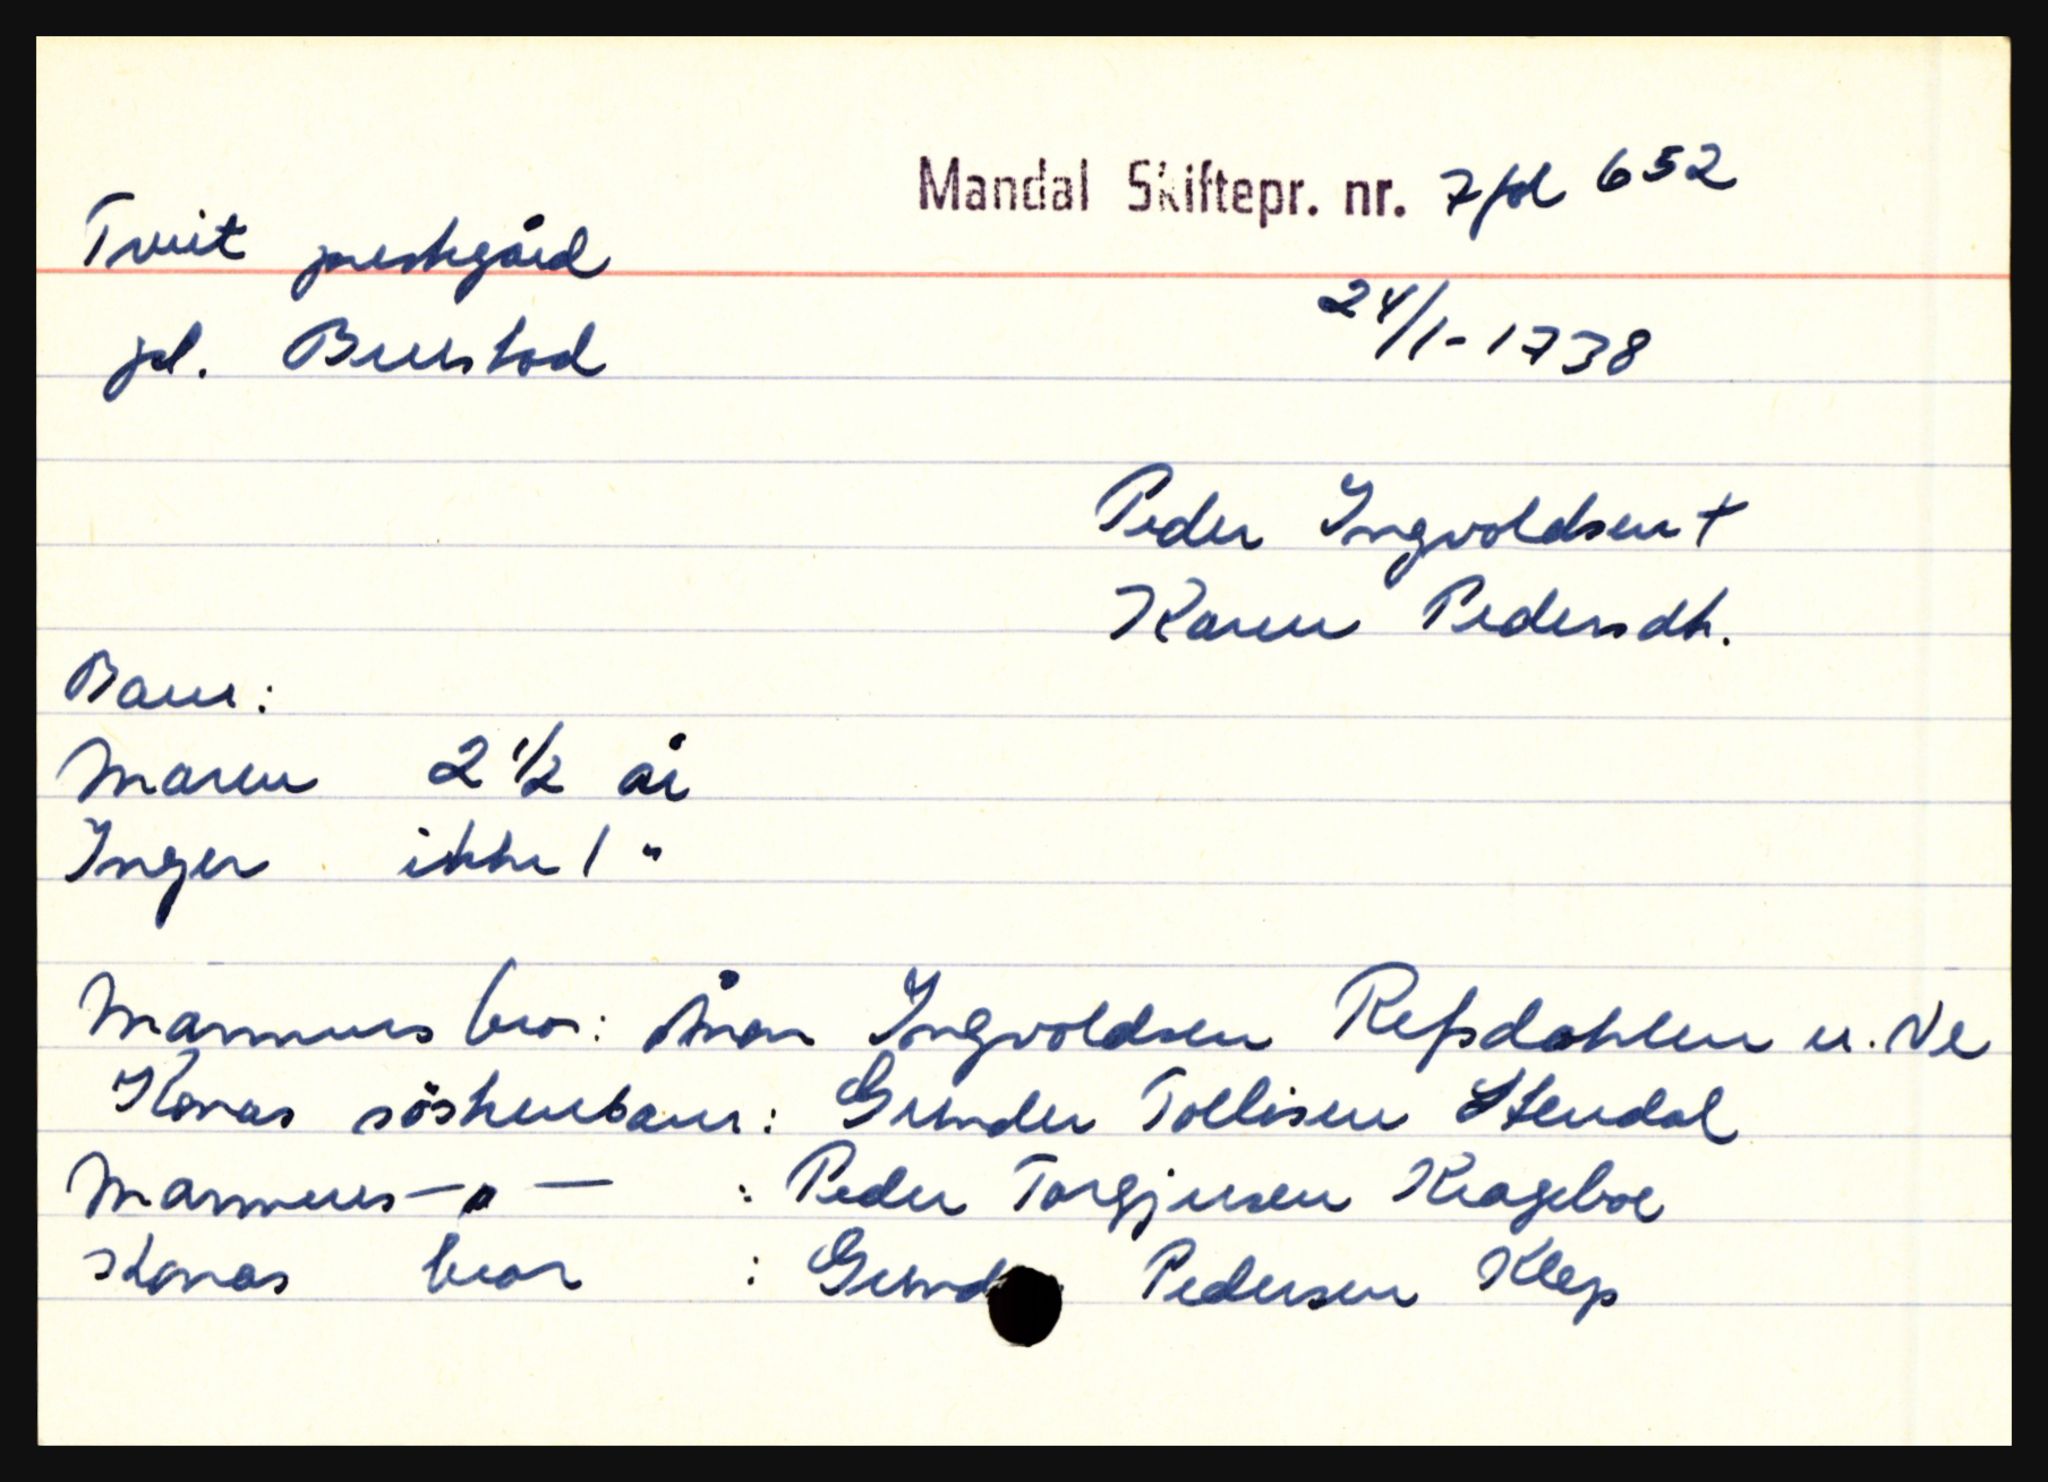 Mandal Skiftepr. nr. 7 fol 652
Tveit prestegård
pl. Buestad
24/1-1738
Peder Ingvoldsen +
Karen Pedersdt.
Barn:
Maren 2 1/2 år
Inger ikke 1 "
Mannens bror: Ånon Ingvoldsen Refsdahlen u. Ve
Konas söskenbarn: Gunder Tollisen Stendal
Mannens - " - : Peder Torgjusen Krageboe
Konas bror : Gund Pedersen Klep